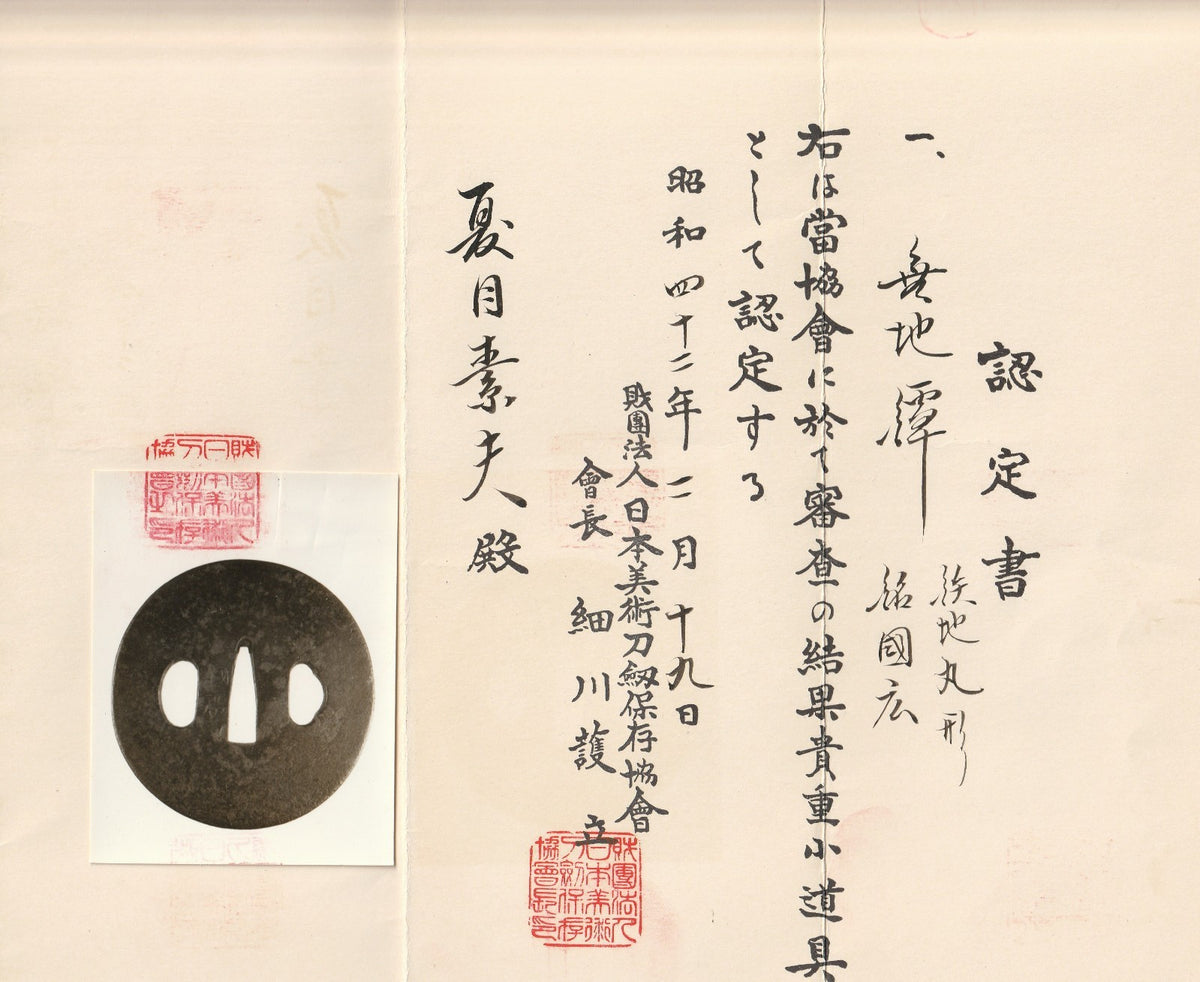 認定書
一、無地鐔
鉄地丸形
銘國広
右は當協會に於て審査の結果貴重小道具
として認定する
昭和四十二年二月十九日
財團法人日本美術刀劔保存協會
會長 細川護立
夏目素夫殿
財團法人
日本美術
刀劔保存
協會長印
財團法人
日本美術
刀劔保存
協會之印